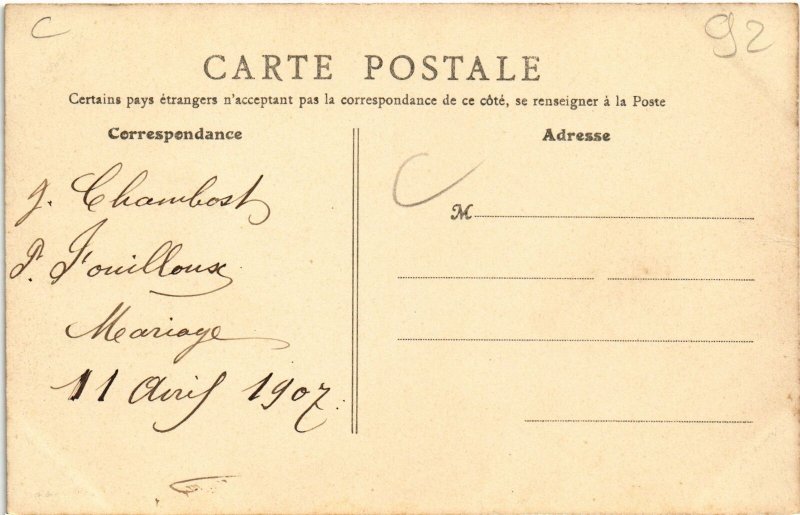 C
92
CARTE POSTALE
Certains pays étrangers n'acceptant pas la correspondance de ce côté, se renseigner à la Poste
Correspondance
J. Chambost
P. Fouilloux
Mariage
11 Avril 1907.
Adresse
M